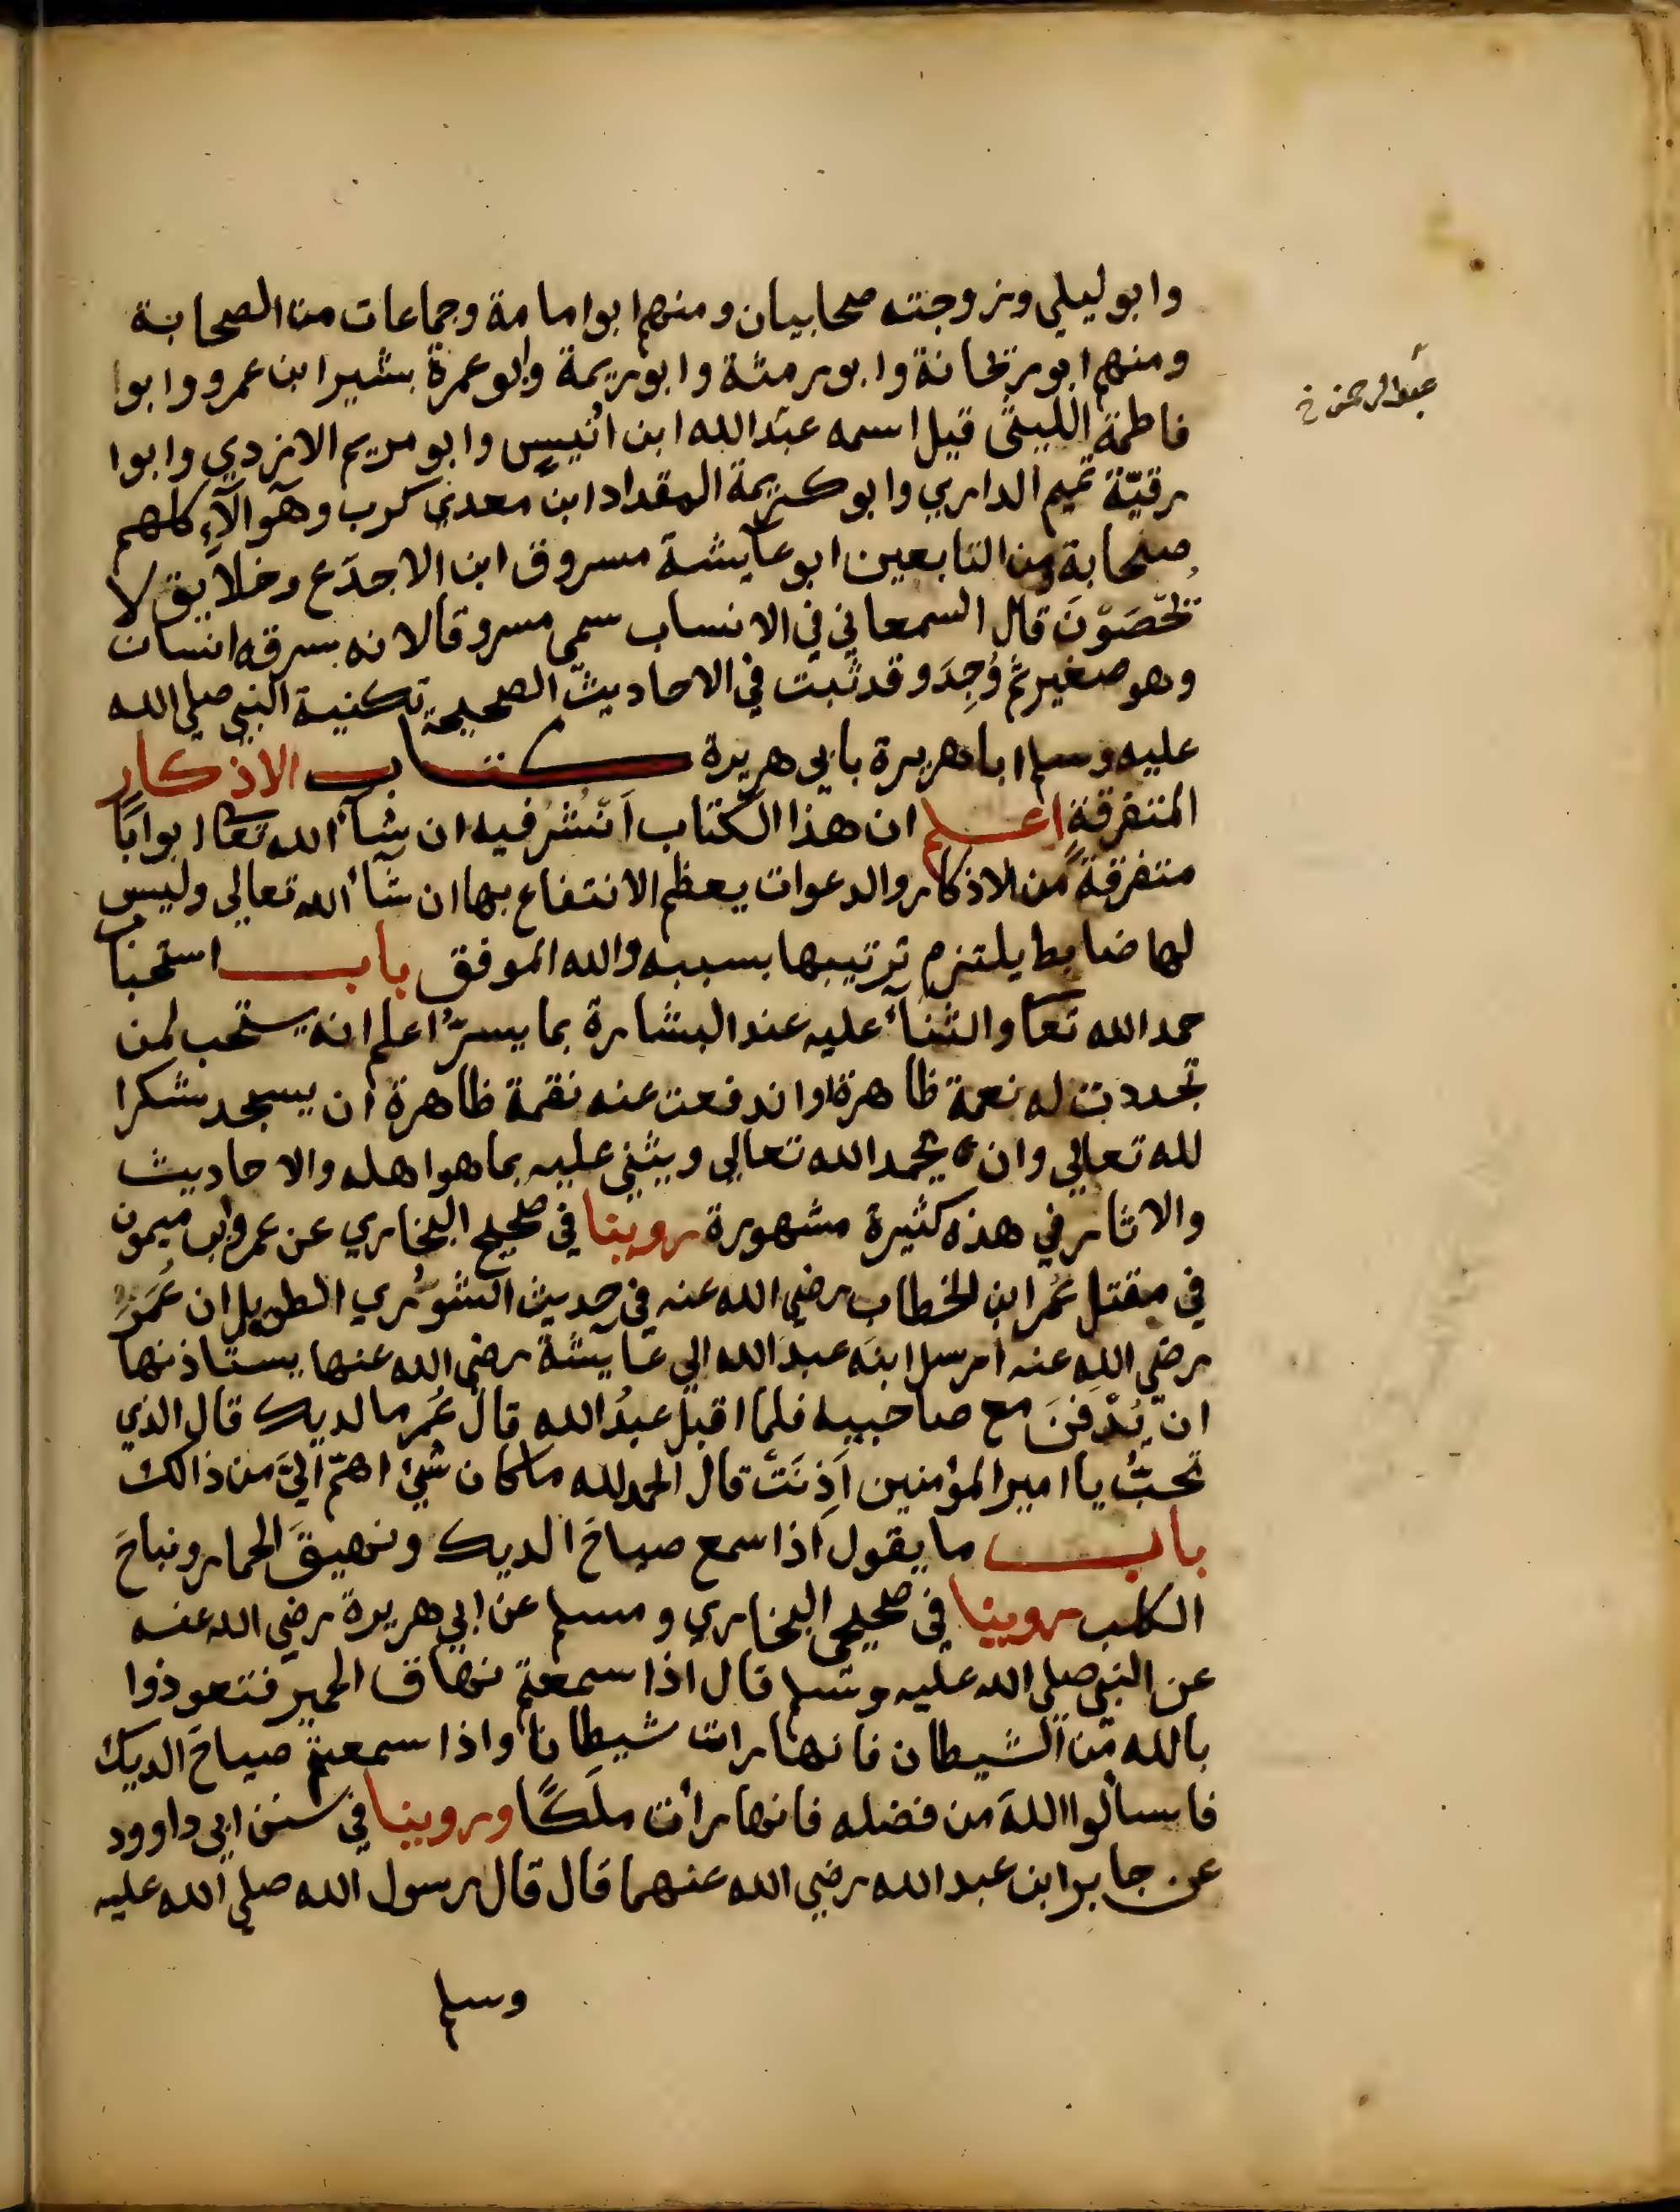 وابو ليلي وزوجته صحابيان ومنهم ابوا مامة وجماعات من الصحابة
ومنهم ابو ريحانة وابو رمثة وابو ريمة وابو عمرة بشير ابن عمرو وابوا
عبد الرحمن خ
فاطمة الليثي قيل اسمه عبد الله ابن انيس وابو مريم الازدي وابوا
رقيّة تميم الداري وابو كريمة المقداد ابن معدي كرب وهوآلآء كلهم
صحابة ومن التابعين ابو عآيشة مسروق ابن الاجدَع وخلايق لا
تحصَوْنَ قال السمعاني في الانساب سمي مسروقا لانه سرقه انسان
وهو صغير ثم وُجِدَ وقد ثبت في الاحاديث الصحيحة تكنية النبي صلي الله
عليه وسلم ابا هريرة بابي هريرة كتاب الاذكار
المتفرقةِ اعلم ان هذا الكتاب اَنْشُر فيه ان شآء الله تعا ابوابًا
متفرقةً من الاذكار والدعوات يعظم الانتفاع بها ان شآء الله تعالي وليس
لها ضابط يلتزم ترتيبها بسببه والله الموفق باب استحبا
حمد الله تعا والثنآء عليه عند البشارة بما يسرّ اعلم انه يستحب لمن
تجددت له نعمة ظاهرة او اندفعت عنه نقمة ظاهرة ان يسجد شكرا
لله تعالي وان يحمد الله تعالي ويثني عليه بما هو اهله والاحاديث
والاثار في هذه كثيرة مشهورة روينا في صحيح البخاري عن عمرو ابن ميمون
في مقتل عُمر ابن الخطاب رضي الله عنه في حديث الشوري الطويل ان عُمَرَ
رضي الله عنه ارسل ابنَه عبدَ الله الي عآيشة رضي الله عنها يستاذنها
ان يُدْفَنَ مع صاحبيه فلما اقبل عبدُ الله قال عُمر ما لديك قال الذي
تحبُّ يا امير المؤمنين اَذِنَتْ قال الحمد لله ما كان شئ اهمّ اليَّ من ذالك
باب ما يقول اذا سمع صياحَ الديك ونهيقَ الحمار ونباحَ
الكلب روينا في صحيحي البخاري ومسلم عن ابي هريرة رضي الله عنه
عن النبي صلي الله عليه وسلم قال اذا سمعتم نهاق الحمير فتعوذوا
بالله من الشيطان فانها رات شيطانا واذا سمعتم صياحَ الديك
فاسألوا اللهَ من فضله فانها رأت ملَكًا وروينا في سنن ابي داوود
عن جابر ابن عبد الله رضي الله عنهما قال قال رسول الله صلي الله عليه
وسلم